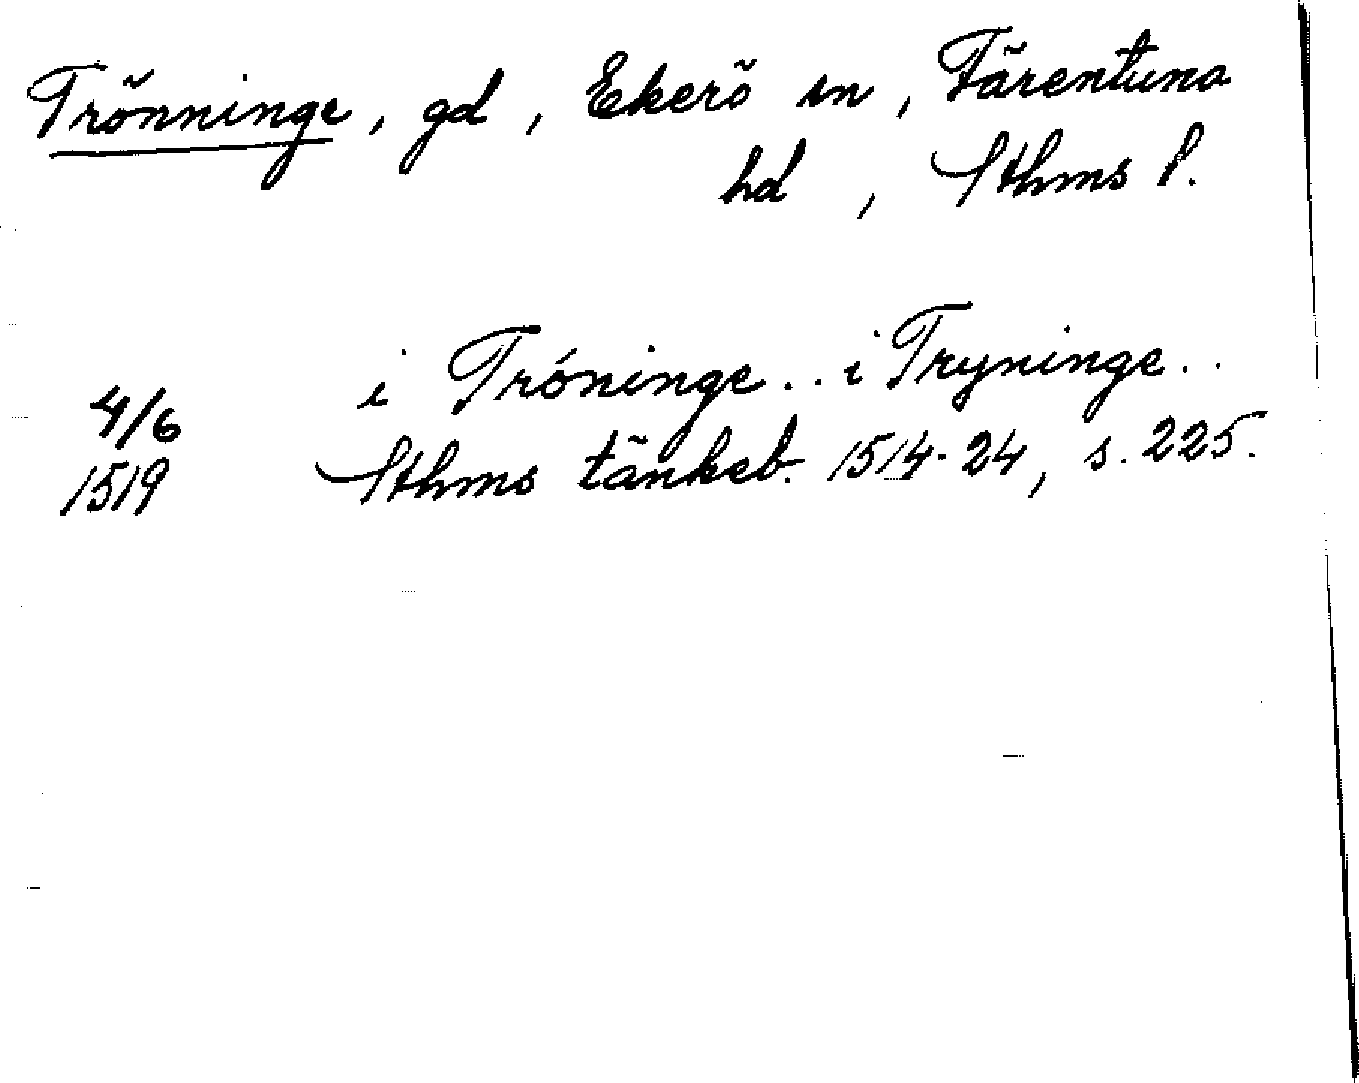 Trönninge, gd, Ekerö sn, Färentuna
hd, Sthms l.
i Tróninge.. i Tryninge..
4/6
1519
Sthms tänkeb. 1514-24, s. 225.